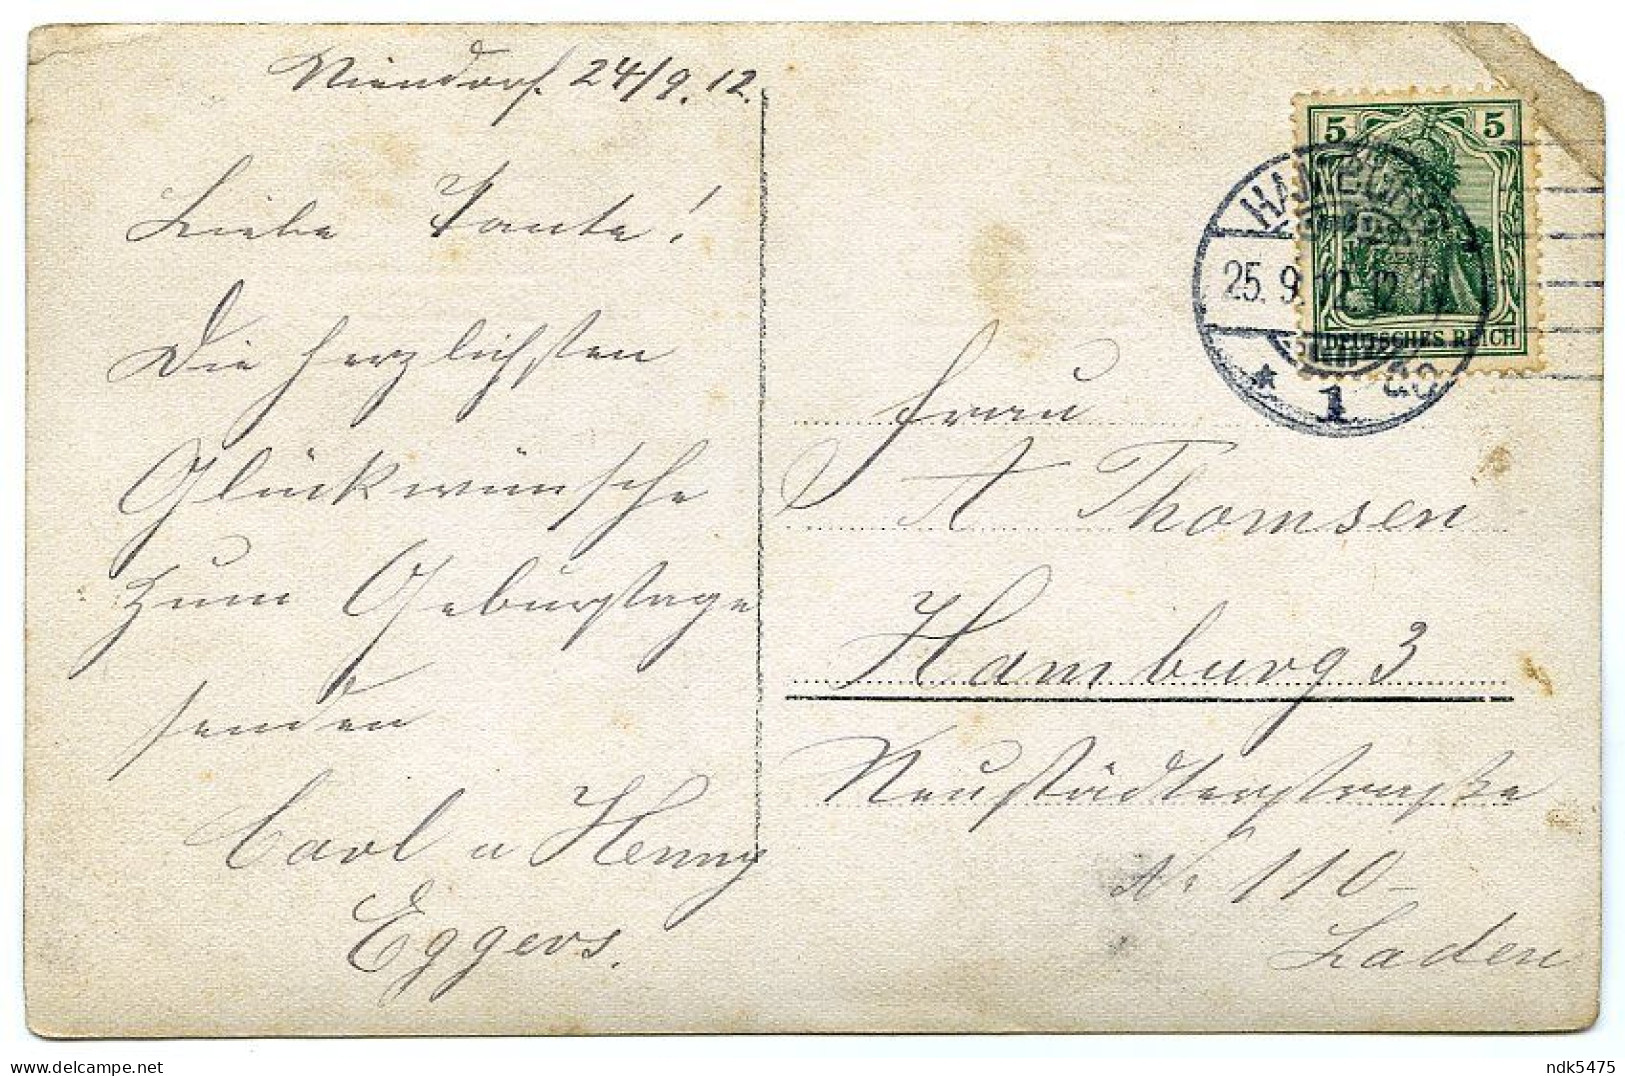 Niendorf. 24/9.12.
Liebe Tante!
Die herzlichsten
Glückwünsche
zum Geburtstage
senden
Carl u Henny
Eggers.
5 5
HAMBURG
25.9.12.12-1N
DEUTSCHES REICH
* 1 *
Frau
A Thomsen
Hamburg 3
Neustädterstraße
No 110
Laden
ndk5475